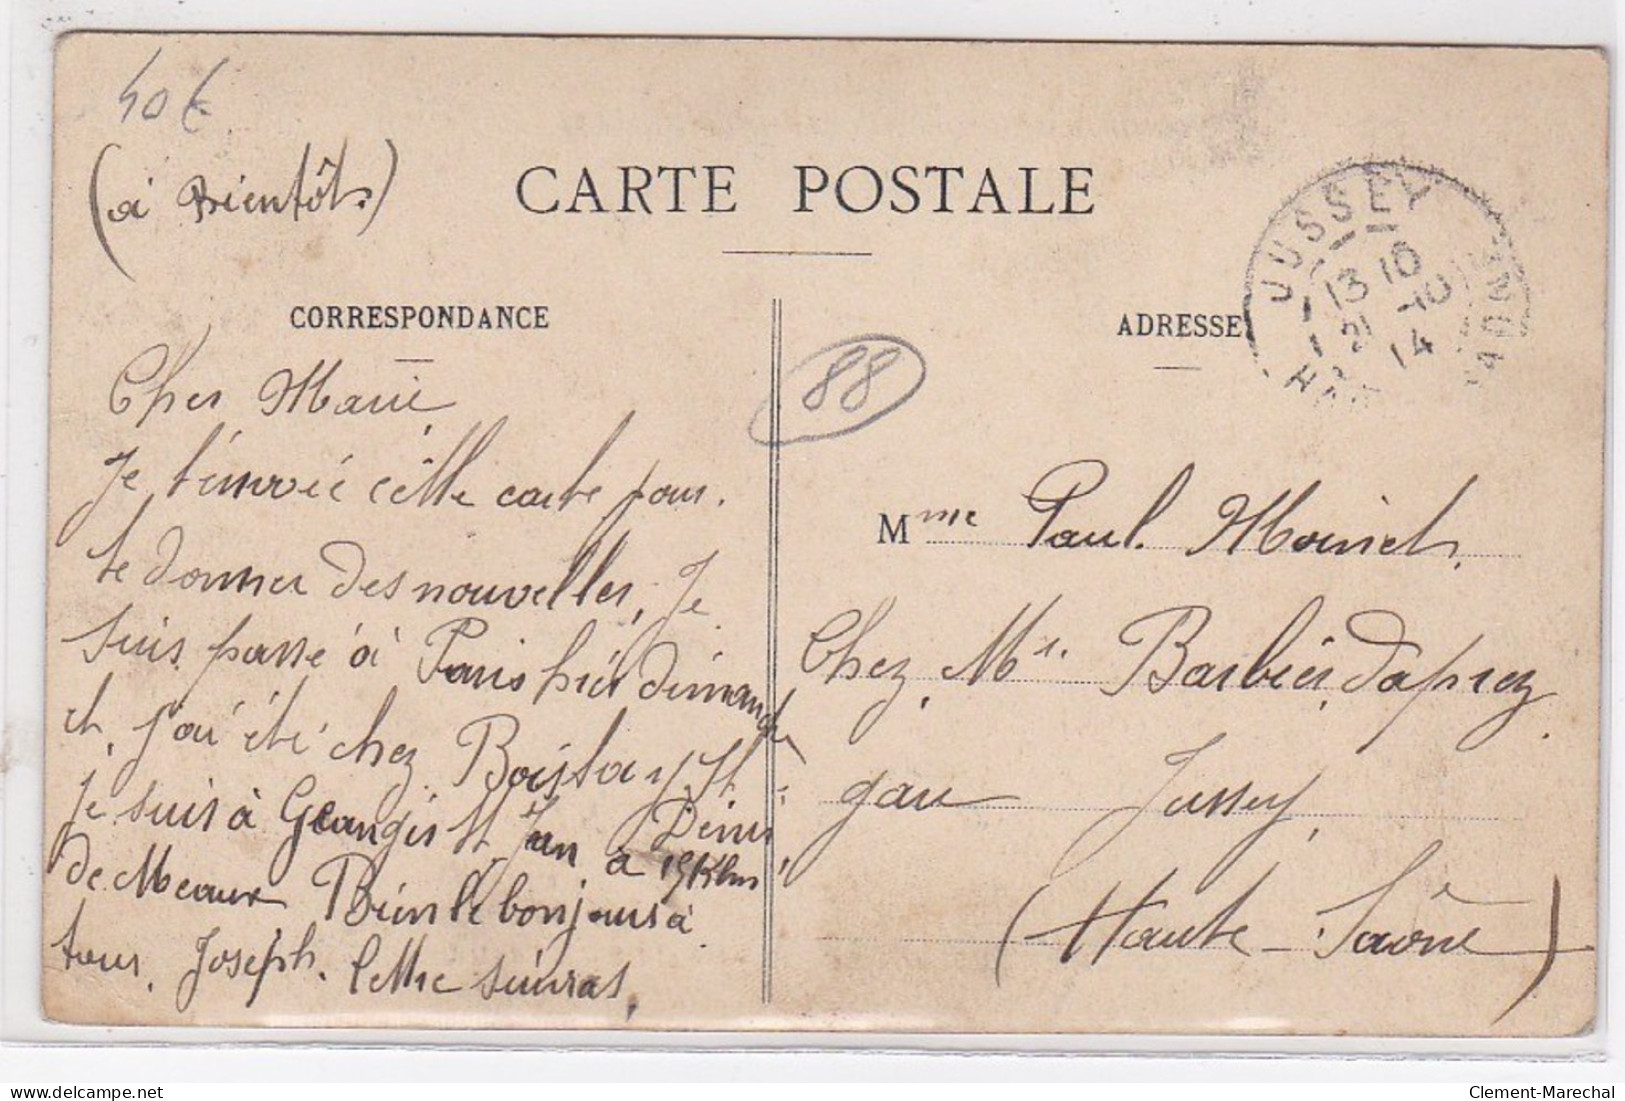 40€
(à Bientôt.)
CARTE POSTALE
CORRESPONDANCE
ADRESSE
JUSSEY
13 10
21 -10
14
88
Cher Marie
Je t'envoie cette carte pour
te donner des nouvelles, Je
suis passé à Paris hier dimanche
et, j'ai été chez Boistay, St
Denis
je suis à Geangis St Jean à 15 Klm
de Meaux Bien le bonjours à
tous. Joseph. lettre suivras.
Mme Paul. Moinet.
Chez, Mr. Barbier, daprez
gare Jussey,
(Haute-Saône)
Clement-Marechal